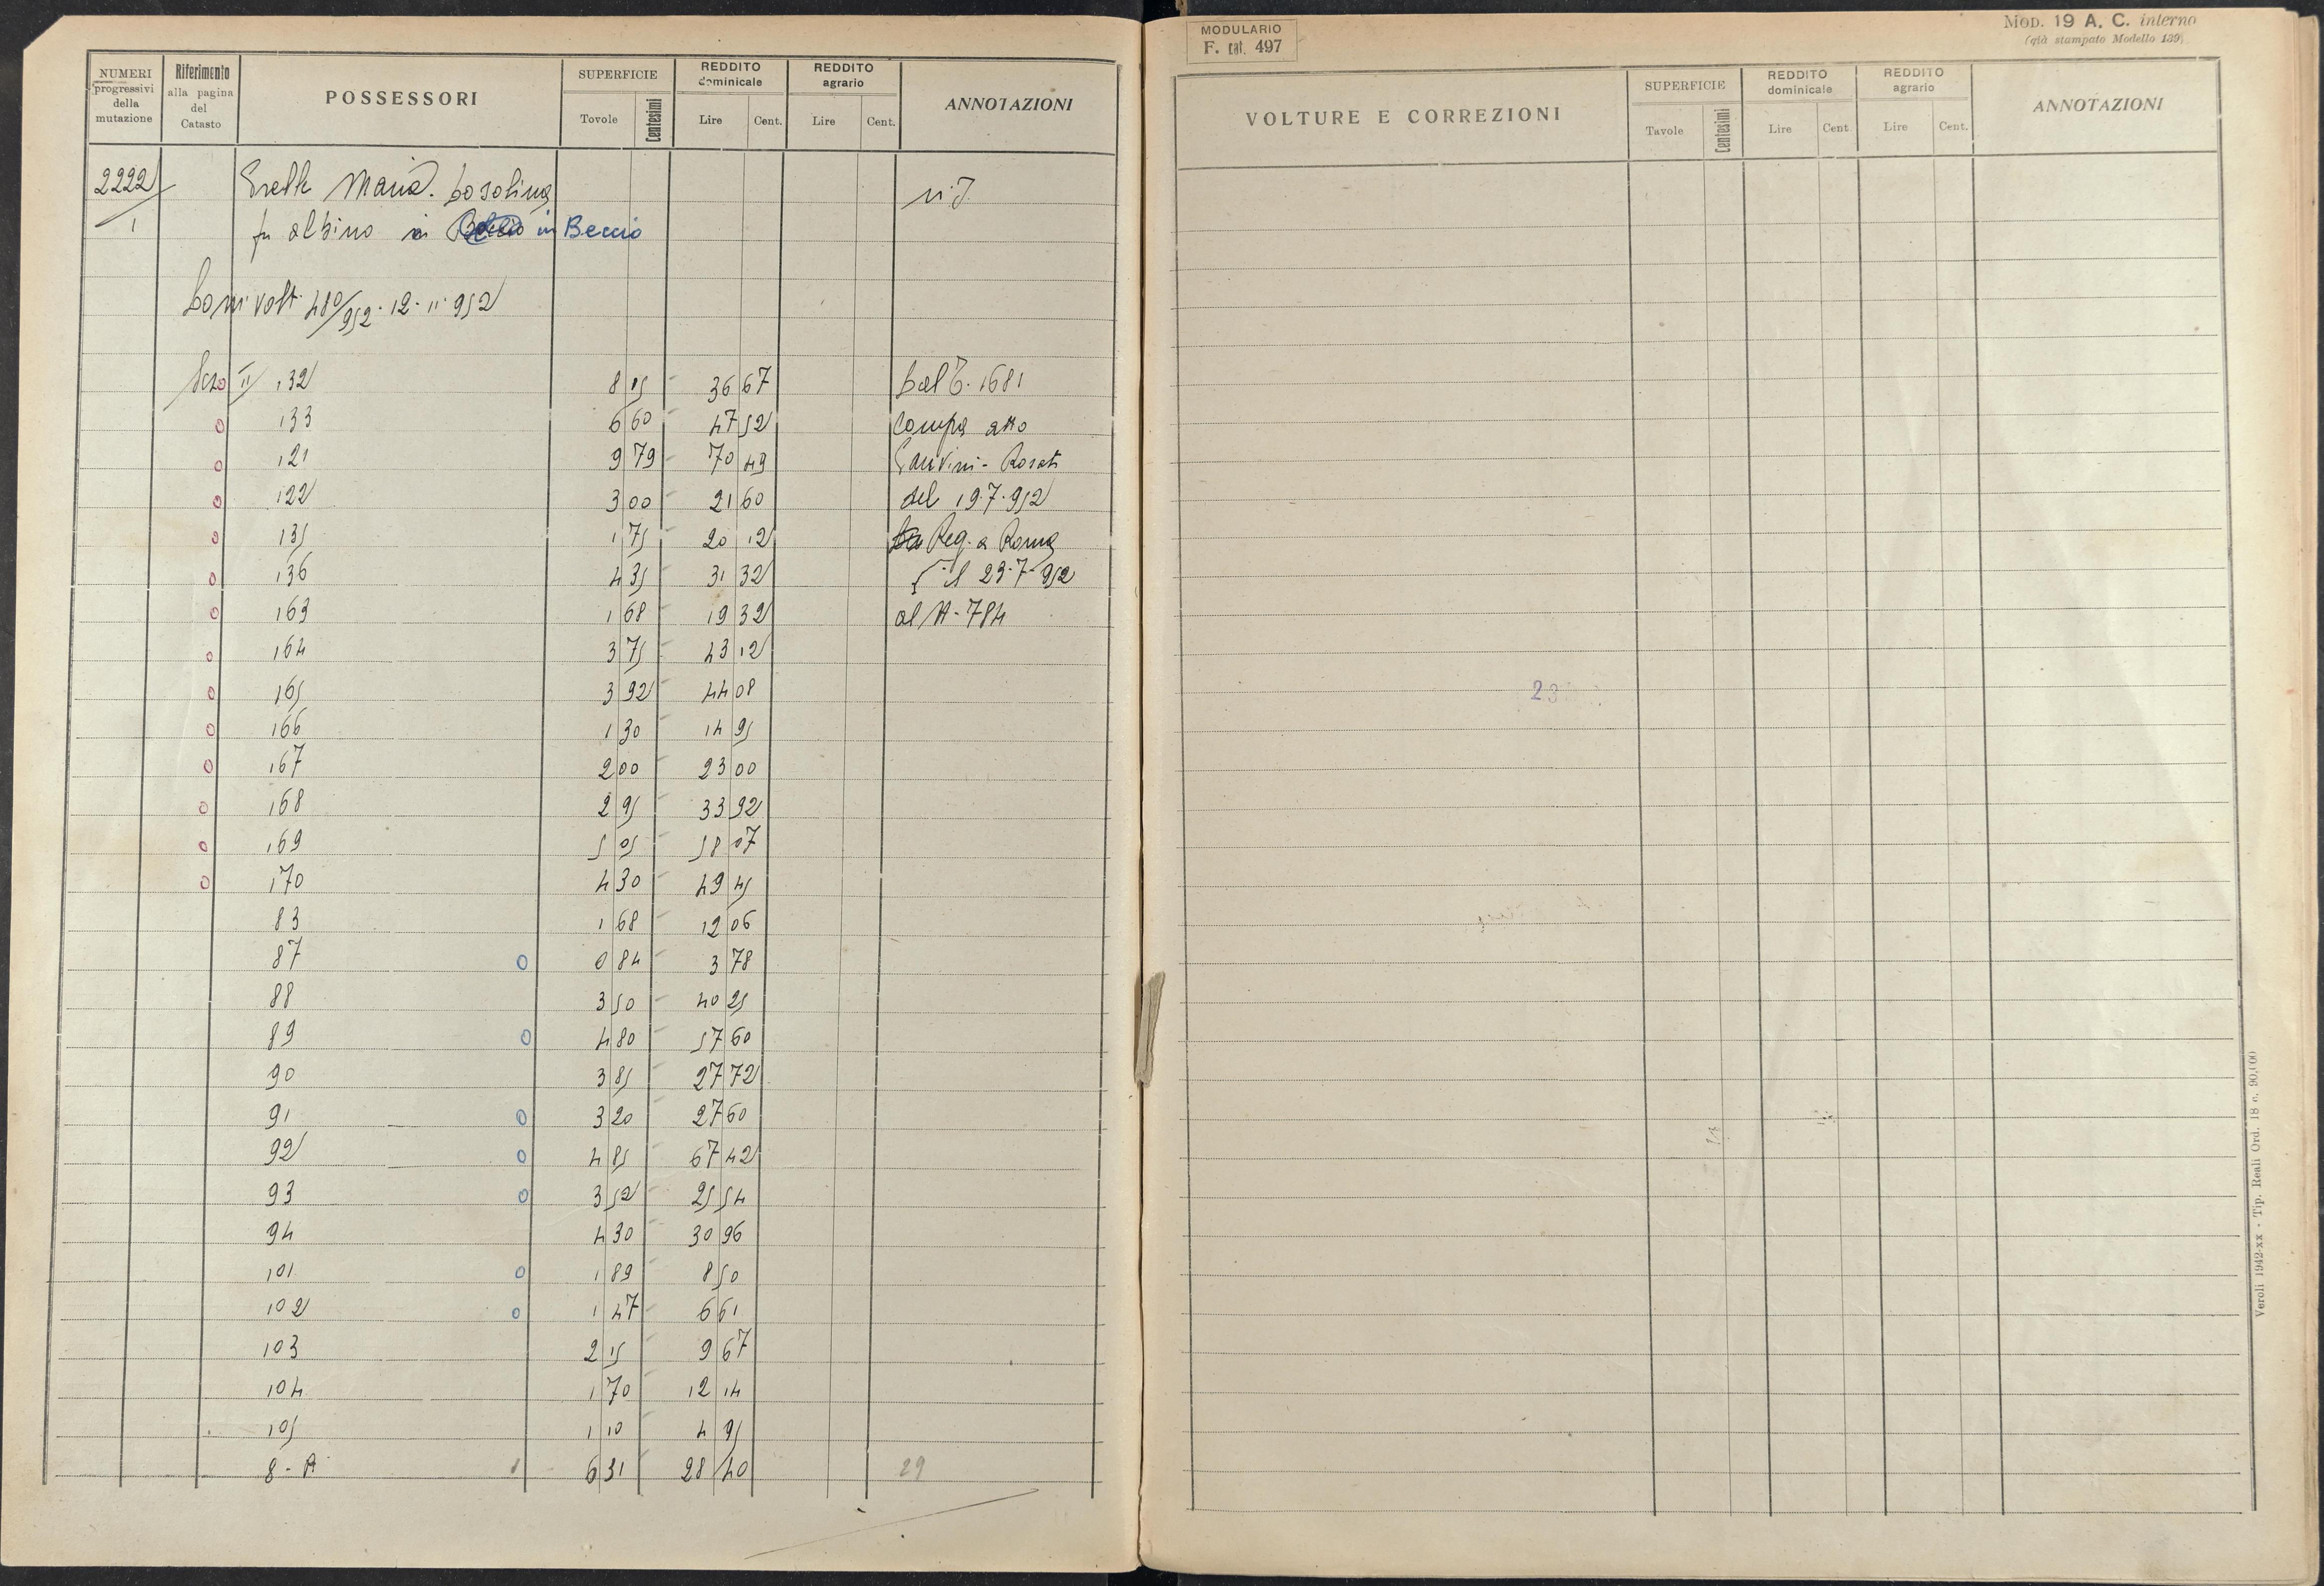 NUMERI progressivi della mutazione
Riferimento alla pagina del Catasto
POSSESSORI
SUPERFICIE
Tovole Centesimi
REDDITO dominicale
Lire Cent.
REDDITO agrario
Lire Cent.
ANNOTAZIONI
2222/1 Maria
fu albino in in Beccio
volt. 480/952. 12. 11. 952
II 132 8 15 36 67 1681
133 6 60 47 52 atto
121 9 79 70 49 Rosati
122 3 00 21 60 del 19.7.952
135 1 75 20 12 Reg. a Roma
136 4 35 31 32 il 23.7.952
163 1 68 19 32 al N. 784
164 3 75 43 12
165 3 92 44 08
166 1 30 14 95
167 2 00 23 00
168 2 95 33 92
169 5 05 58 07
170 4 30 49 45
83 1 68 12 06
87 0 84 3 78
88 3 50 40 25
89 4 80 57 60
90 3 85 27 72
91 3 20 27 60
92 4 85 67 42
93 3 52 25 54
94 4 30 30 96
101 1 89 8 50
102 1 47 6 61
103 2 15 9 67
104 1 70 12 14
105 1 10 4 95
8 - A 6 31 28 40 29
MODULARIO
F. cat. 497
MOD. 19 A. C. interno
(già stampato Modello 139)
VOLTURE E CORREZIONI
SUPERFICIE
Tavole Centesimi
REDDITO dominicale
Lire Cent
REDDITO agrario
Lire Cent.
ANNOTAZIONI
23
Veroli 1942-XX - Tip. Reali Ord. 18 c. 90,000